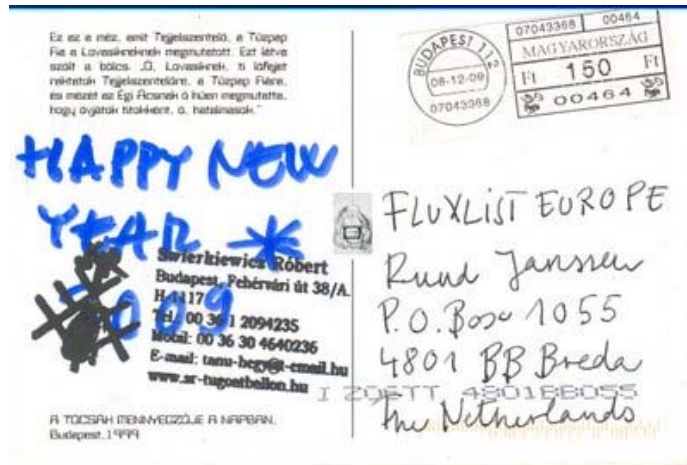 Ez az a méz, amit Tejjelszentelő, a Tűzpap
Fia a Lovasikreknek megmutatott. Ezt látva
szólt a bölcs. „Ó, Lovasikrek, ti lófejet
raktatok Tejjelszentelőre, a Tűzpap Fiára,
és mézét az Égi Ácsnak ő híven megmutatta,
hogy óvjátok titokként, ó, hatalmasok."
HAPPY NEW
YEAR
2009
Swierkiewicz Róbert
Budapest, Fehérvári út 38/A.
H-1117
Tel.: 00 36 1 2094235
Mobil: 00 36 30 4640236
E-mail: tanu-hegy@t-email.hu
www.sr-tugoatbellon.hu
A TOCSÁH MENNYEGZŐJE A NAPBAN.
Budapest, 1999
BUDAPEST 112
08-12-09
07043368
07043368 00464
MAGYARORSZÁG
Ft 150 Ft
00464
FLUXLIST EUROPE
Ruud Janssen
P.O. Box 1055
4801 BB Breda
4801BB055
the Netherlands